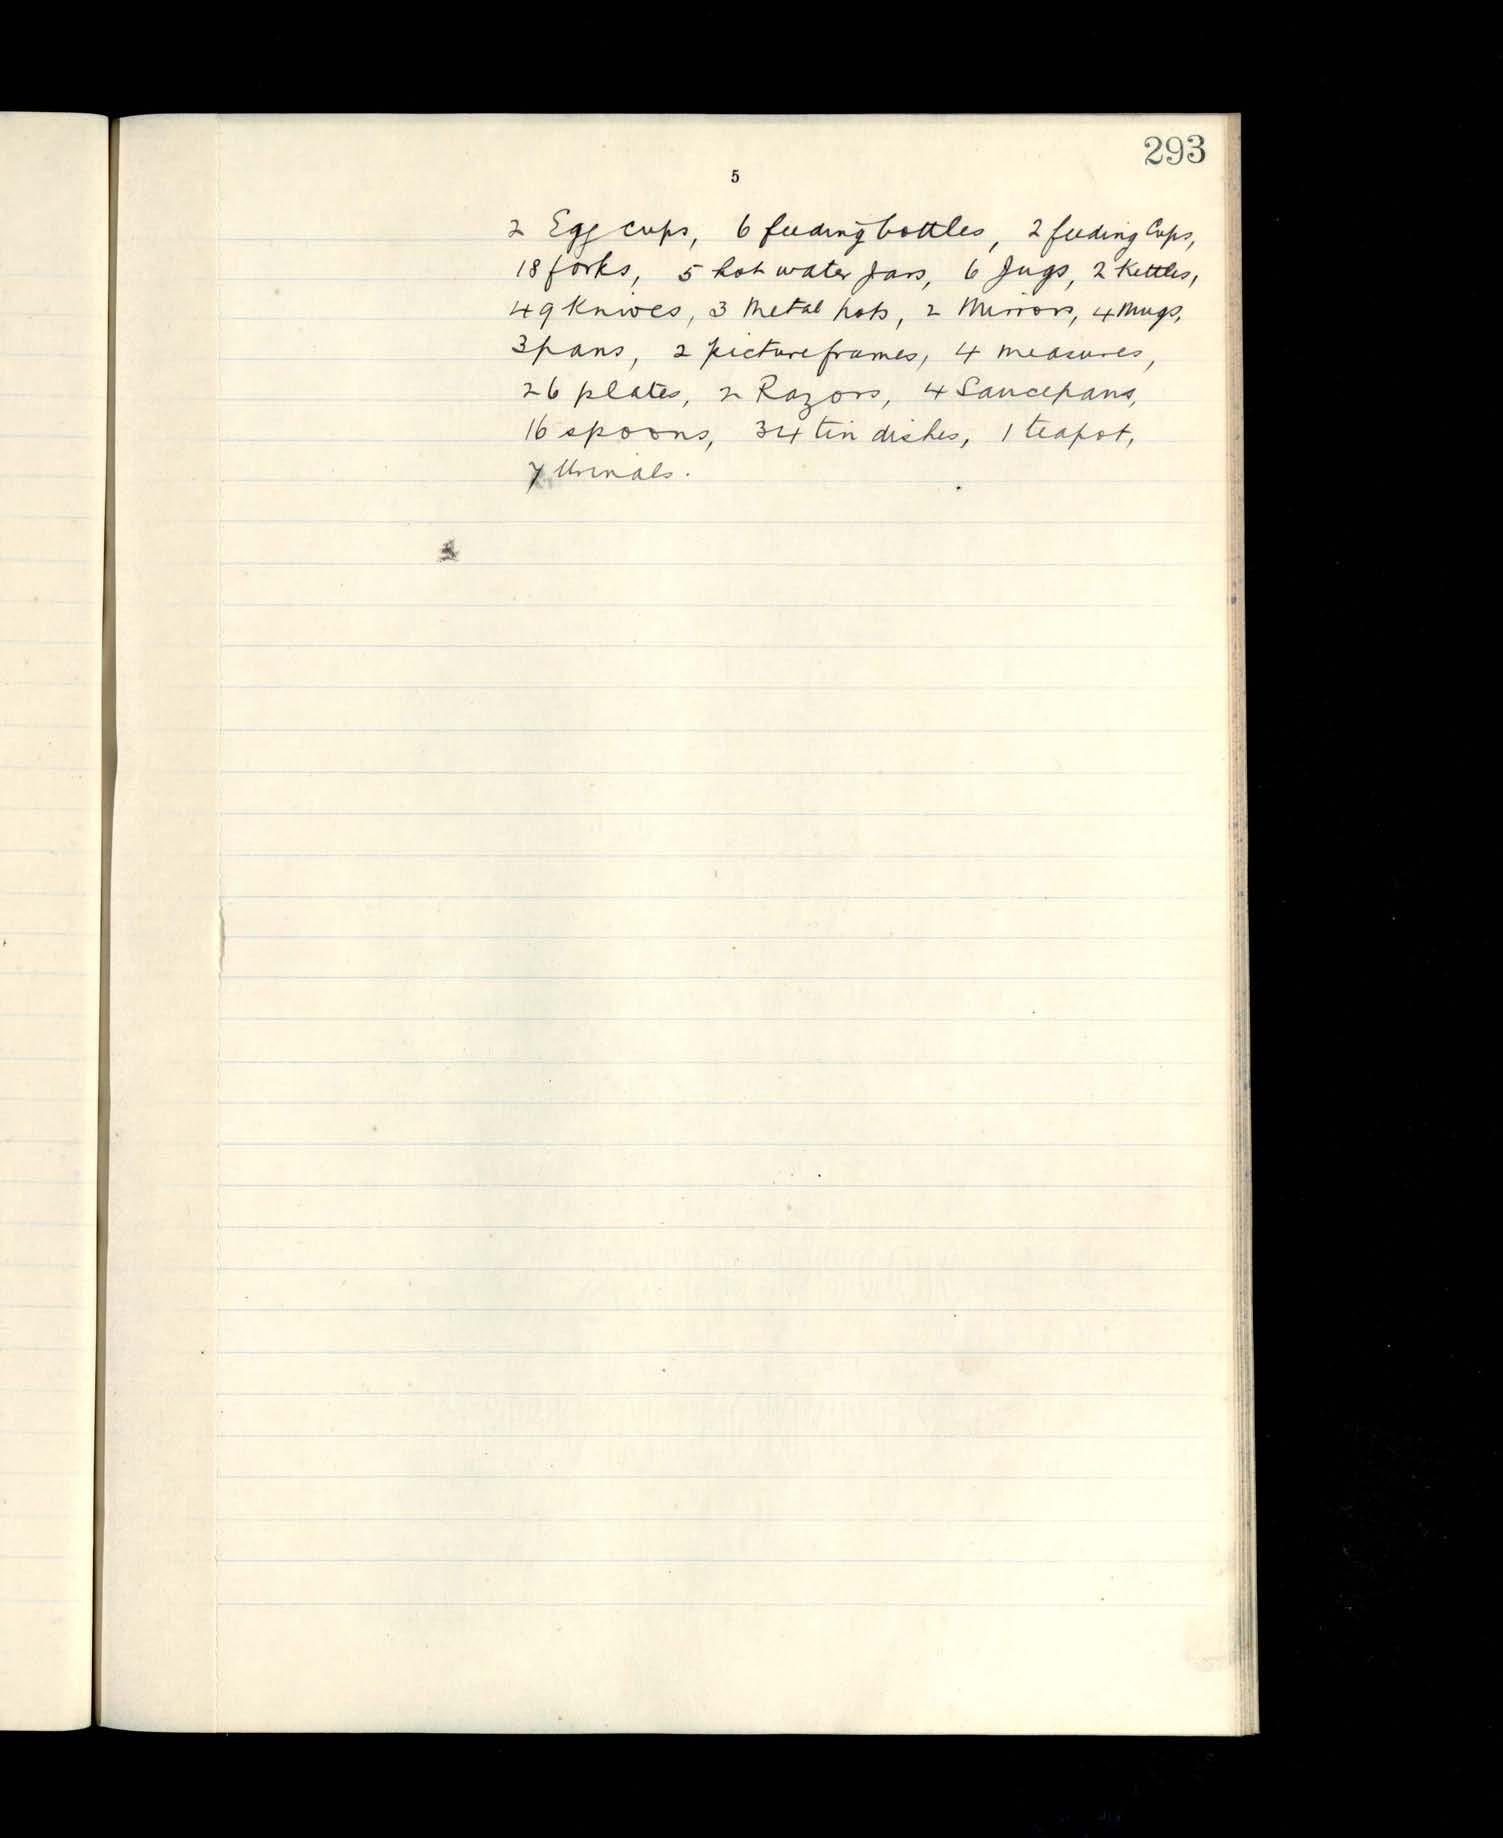 293
5
2 Egg cups, 6 feeding bottles, 2 feeding Cups,
18 forks, 5 hot water Jars, 6 Jugs, 2 Kettles,
49 Knives, 3 Metal pots, 2 Mirrors, 4 Mugs,
3 pans, 2 picture frames, 4 measures,
26 plates, 2 Razors, 4 Saucepans,
16 spoons, 34 tin dishes, 1 teapot,
7 Urinals.